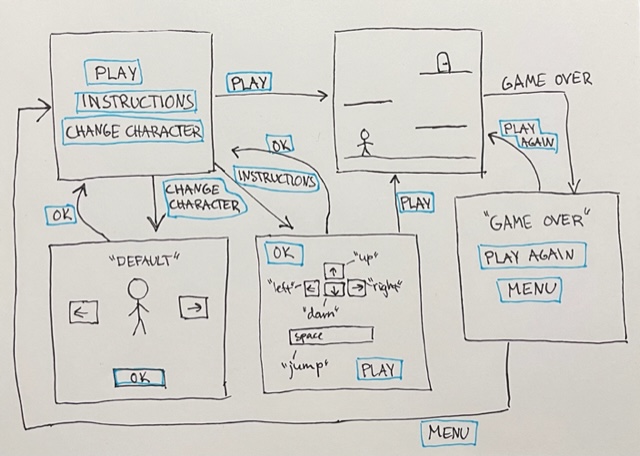 PLAY
INSTRUCTIONS
CHANGE CHARACTER
PLAY
GAME OVER
PLAY
AGAIN
OK
INSTRUCTIONS
CHANGE
CHARACTER
OK
PLAY
"DEFAULT"
OK
OK
"up"
"left"
"right"
"down"
space
"jump"
PLAY
"GAME OVER"
PLAY AGAIN
MENU
MENU